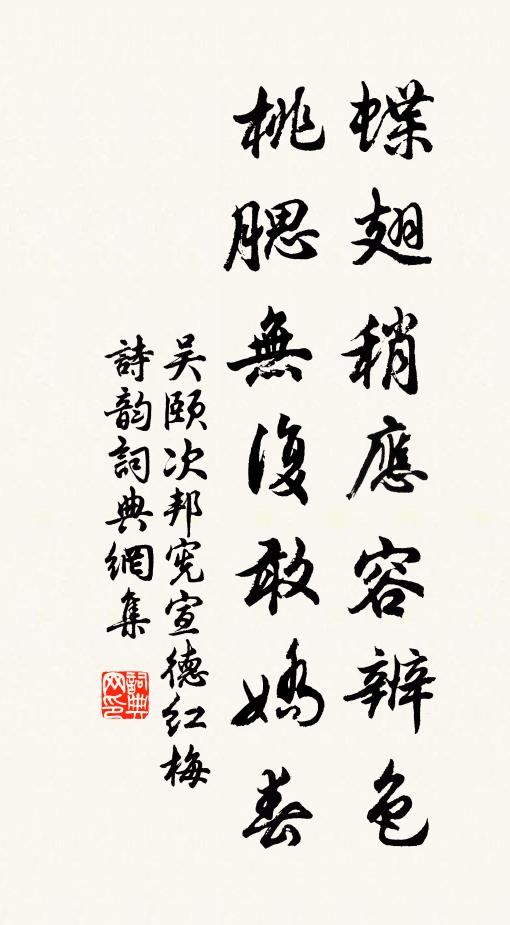 蝶翅稍應容辨色
桃腮無復敢嬌春
吴颐次邦宪宣德红梅
詩韵詞典網集
詞典网印